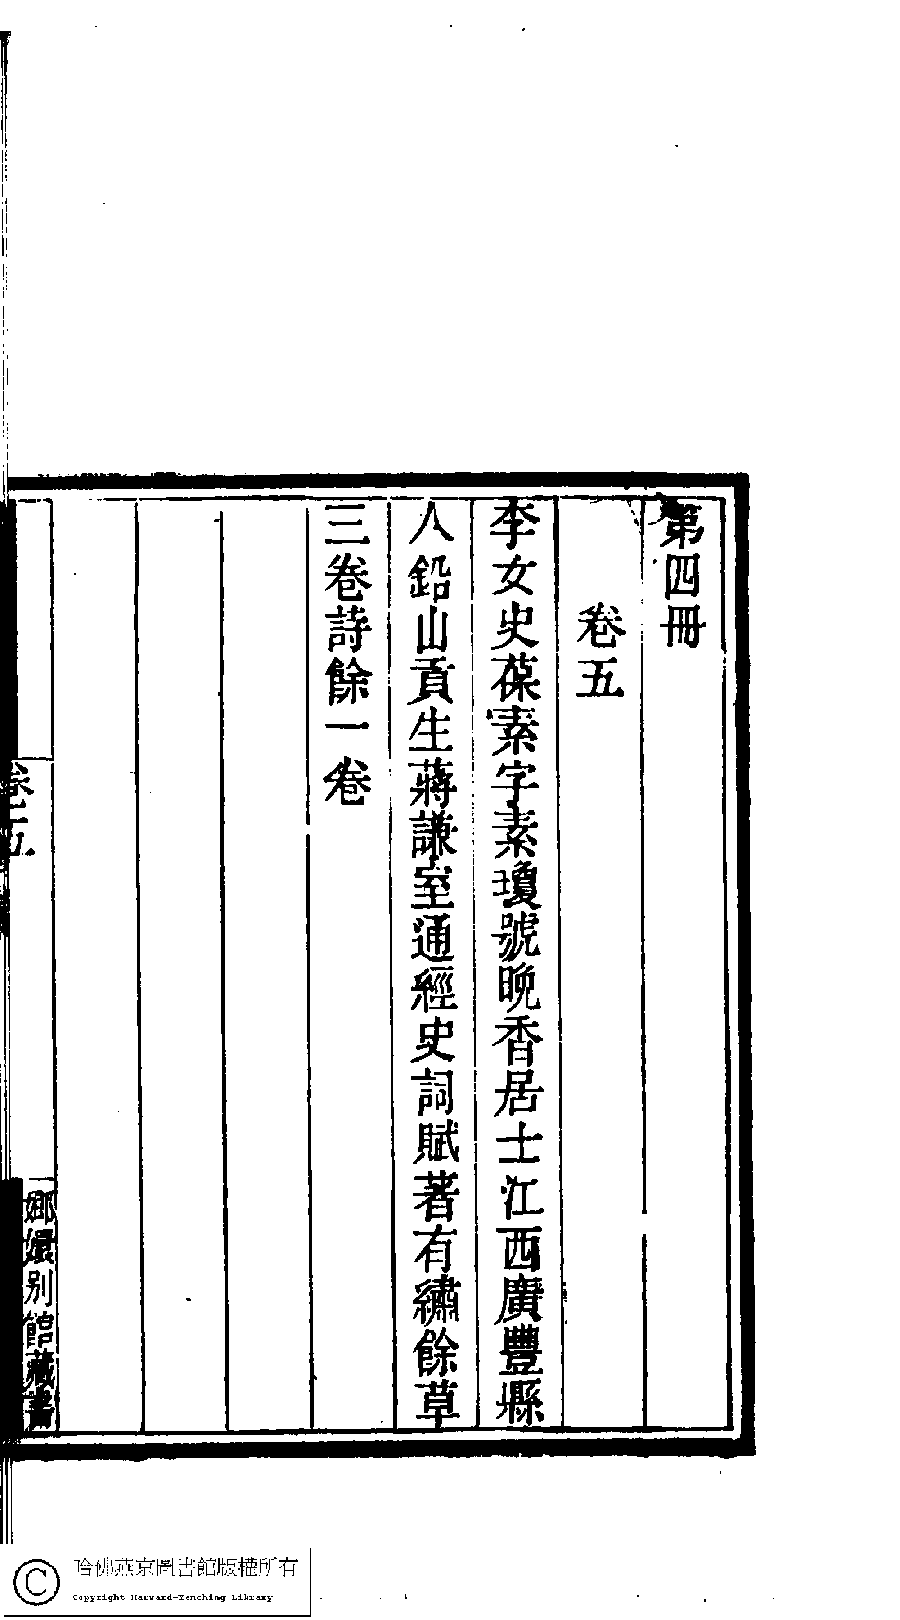 第四冊
卷五
李女史葆素字素瓊號晩香居士江西廣豐縣
人鉛山貢生蔣謙室通經史詞賦著有繡餘草
三卷詩餘一卷
卷五
嫏嬛別館藏書
哈佛燕京圖書館版權所有
Copyright Harvard-Yenching Library